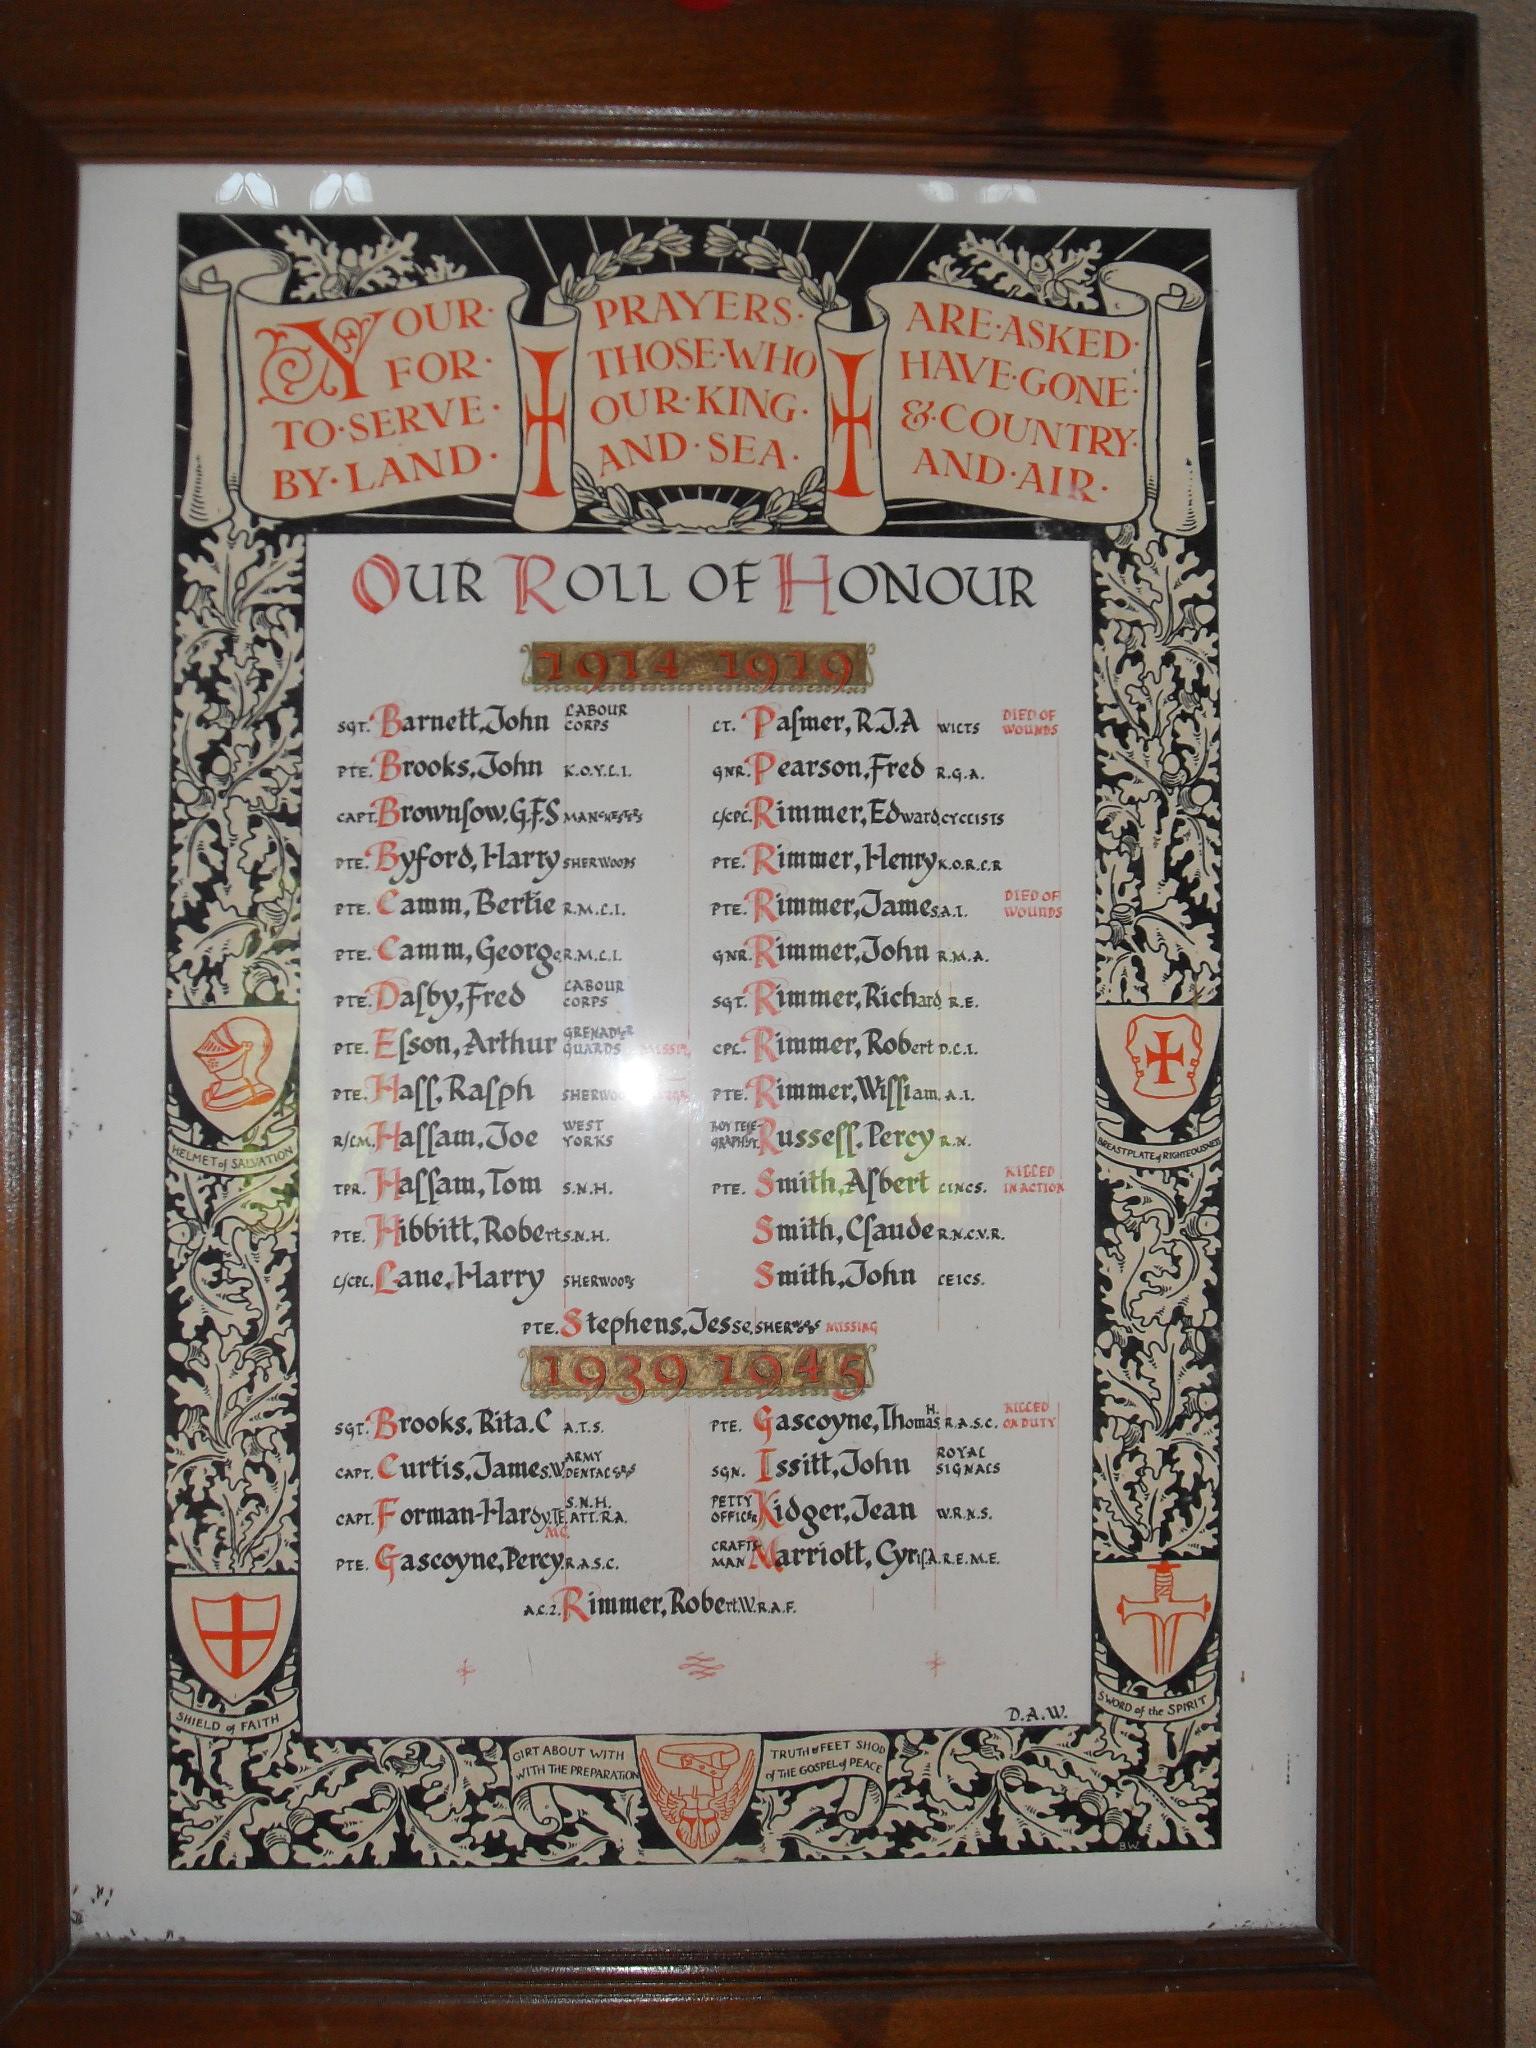 YOUR · PRAYERS · ARE · ASKED ·
FOR · THOSE · WHO HAVE · GONE ·
TO · SERVE · OUR · KING · & · COUNTRY ·
BY · LAND · AND · SEA · AND · AIR ·
OUR ROLL OF HONOUR
1914 1919
SGT. Barnett, John LABOUR CORPS
PTE. Brooks, John K.O.Y.L.I.
CAPT. Brownlow, G.F.S MANCHESTERS
PTE. Byford, Harry SHERWOODS
PTE. Camm, Bertie R.M.L.I.
PTE. Camm, George R.M.L.I.
PTE. Dalby, Fred LABOUR CORPS
PTE. Elson, Arthur GRENADIER GUARDS
PTE. Hall, Ralph
R/LM. Hallam, Joe WEST YORKS
TPR. Hallam, Tom S.N.H.
PTE. Hibbitt, Robert S.N.H.
L/CPL. Lane, Harry SHERWOODS
LT. Palmer, R.J.A WILTS DIED OF WOUNDS
GNR. Pearson, Fred R.G.A.
L/CPL. Rimmer, Edward, CYCLISTS
PTE. Rimmer, Henry K.O.R.L.R
PTE. Rimmer, James A.I. DIED OF WOUNDS
GNR. Rimmer, John R.M.A.
SGT. Rimmer, Richard R.E.
CPL. Rimmer, Robert D.L.I.
PTE. Rimmer, William, A.I.
Russell, Percy R.N.
PTE. Smith, Albert LINCS. KILLED IN ACTION
Smith, Claude R.N.C.V.R.
Smith, John LEICS.
PTE. Stephens, Jesse, MISSING
1939 1945
SGT. Brooks, Rita. C A.T.S.
CAPT. Curtis, James. W ARMY DENTAL
CAPT. Forman-Hardy, T.E. S.N.H. ATT. R.A. MC.
PTE. Gascoyne, Percy R.A.S.C.
PTE. Gascoyne, Thomas H. R.A.S.C. KILLED ON DUTY
SGN. Issitt, John ROYAL SIGNALS
PETTY OFFICER Kidger, Jean W.R.N.S.
CRAFTSMAN Marriott, Cyril A. R.E.M.E.
A.C.2. Rimmer, Robert. W R.A.F.
D.A.W.
HELMET of SALVATION
BREASTPLATE of RIGHTEOUSNESS
SHIELD of FAITH
SWORD of the SPIRIT
GIRT ABOUT WITH TRUTH & FEET SHOD
WITH THE PREPARATION of THE GOSPEL of PEACE
BW